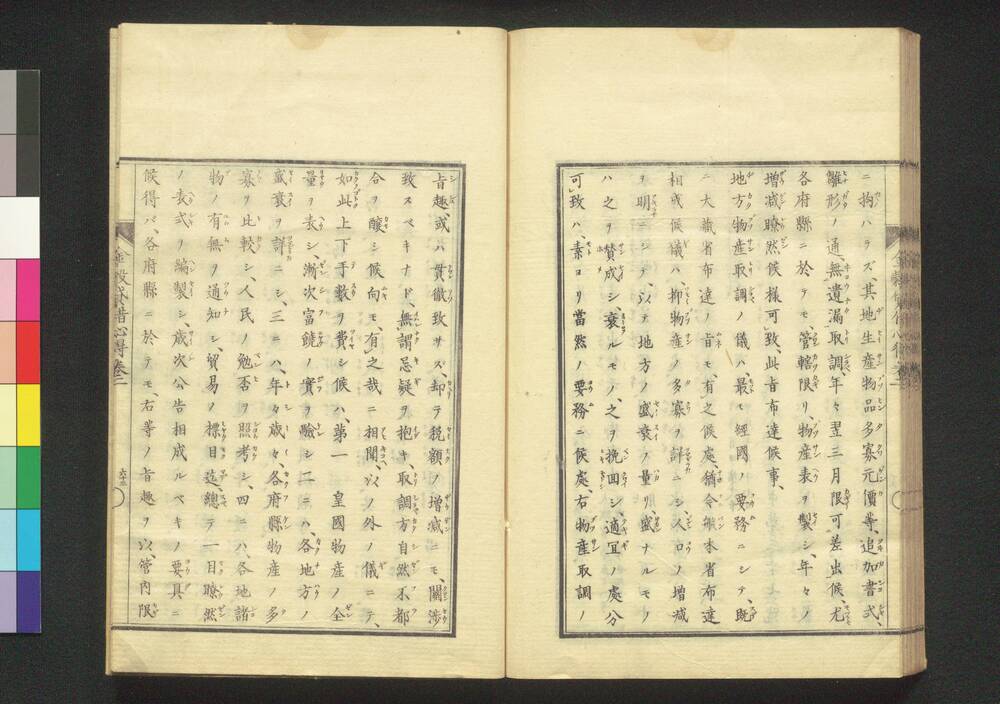 ニ拘ハラズ、其地生産物品多寡元價等、追加書式、
雛形ノ通、無遺漏取調、年々翌三月限可差出候、尤
各府縣ニ於テモ、管轄限リ、物産表ヲ製シ、年々ノ
増减瞭然候樣可致、此旨布達候事、
地方物産取調ノ儀ハ、最モ經國ノ要務ニシテ、既
ニ大藏省布達ノ旨モ、有之候處、猶今般本省布達
相成候儀ハ、抑物産ノ多寡ヲ詳ニシ、人口ノ増减
ヲ明ニシテ、以テ地方ノ盛衰ノ量リ、盛ナルモノ
ハ之ヲ賛成シ、衰ルモノ、之ヲ挽回シ、適冝ノ處分
可致ハ、素ヨリ當然ノ要務ニ候處、右物産取調ノ
旨趣、或ハ貫徹致サス、却テ税額ノ増减ニモ、關渉
致スベキナド、無謂忌疑ヲ抱キ、取調方自然不都
合ヲ醸シ候向モ、有之哉ニ相聞、以ノ外ノ儀ニテ、
如此上下手數ヲ費シ候ハ、第一 皇國物産ノ全
量ヲ表シ、漸次富饒ノ實ヲ驗シ、二ニハ、各地方ノ
盛衰ヲ詳ニシ、三ニハ、年々歳々、各府縣物産ノ多
寡ヲ比較シ、人民ノ勉否ヲ照考シ、四ニハ、各地諸
物ノ有無ヲ通知シ、貿易ノ標目迄、總テ一目瞭然
ノ表式ヲ編製シ、歳次公告相成ルベキノ要具ニ
候得バ、各府縣ニ於テモ、右等ノ旨趣ヲ以、管内限
金穀貸借心得卷二
六十三